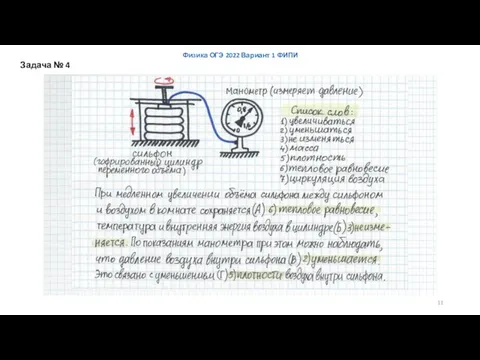 Физика ОГЭ 2022 Вариант 1 ФИПИ
Задача № 4
манометр (измеряет давление)
сильфон
(гофрированный цилиндр
переменного объёма)
Список слов:
1) увеличиваться
2) уменьшаться
3) не изменяться
4) масса
5) плотность
6) тепловое равновесие
7) циркуляция воздуха
При медленном увеличении объёма сильфона между сильфоном
и воздухом в комнате сохраняется (А) 6) тепловое равновесие,
температура и внутренняя энергия воздуха в цилиндре (Б) 3) неизме-
няется. По показаниям манометра при этом можно наблюдать,
что давление воздуха внутри сильфона (В) 2) уменьшается.
Это связано с уменьшением (Г) 5) плотности воздуха внутри сильфона.